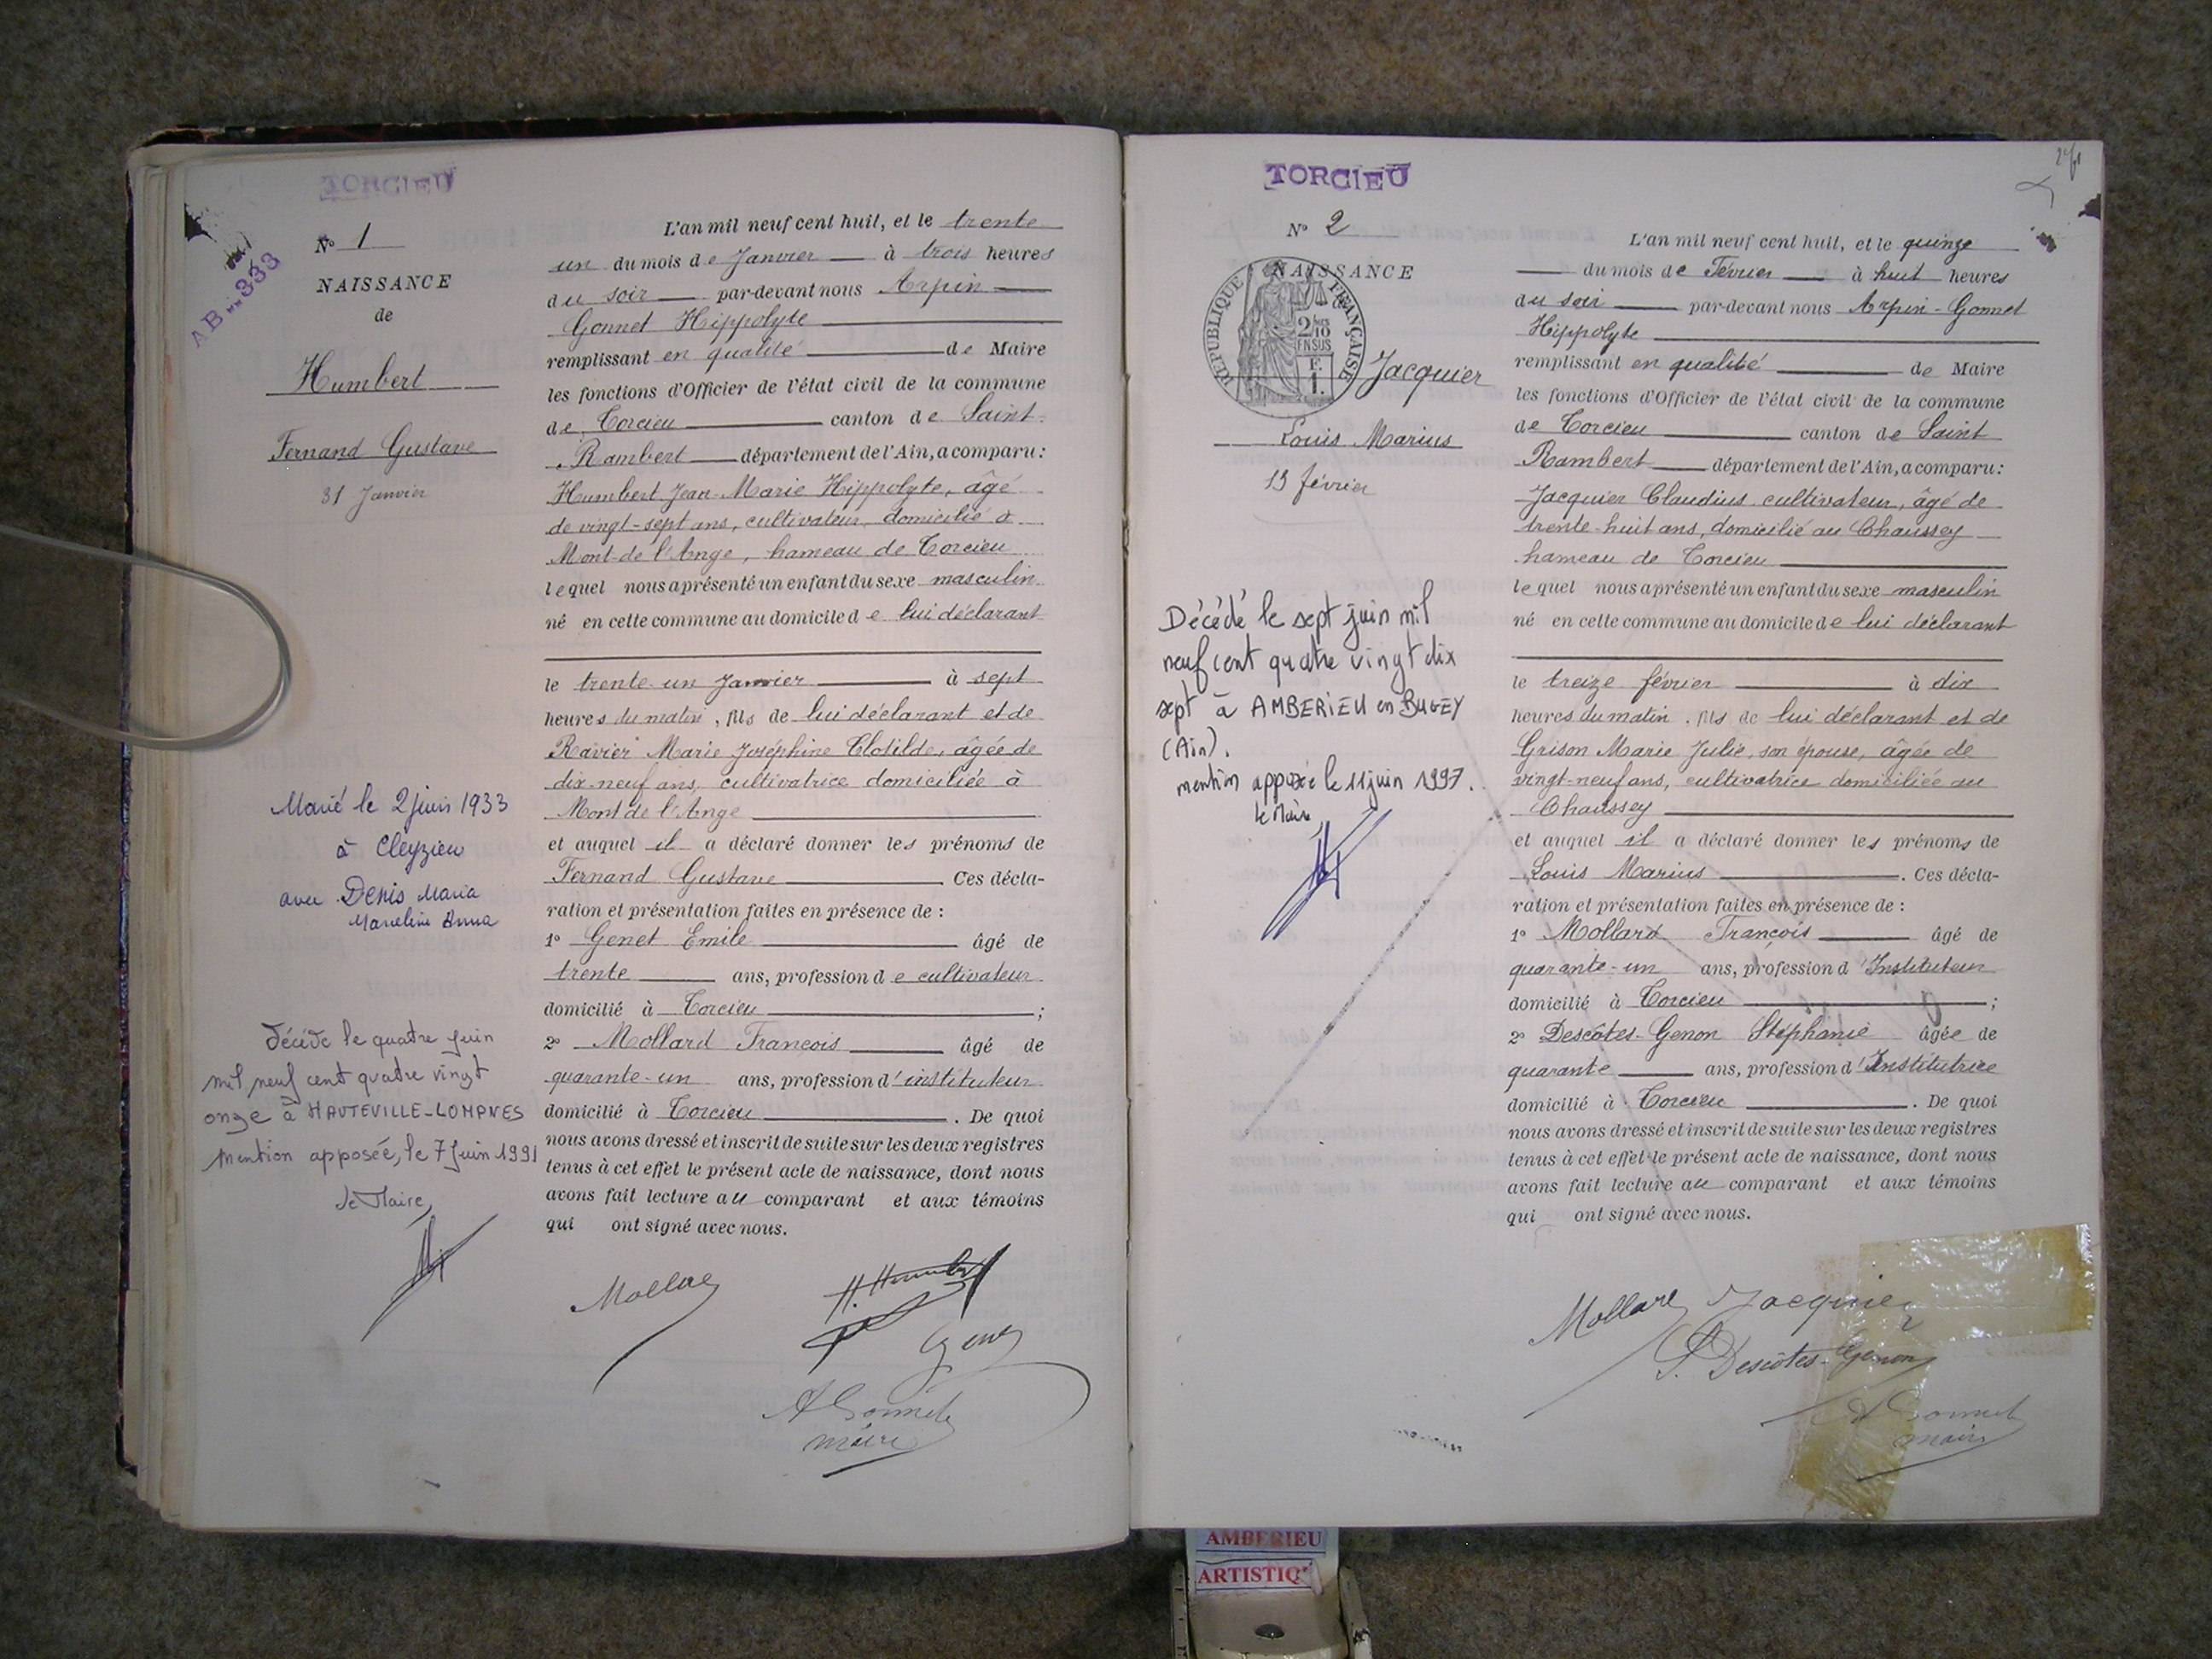 TORCIEU
AB ... 333
N° 1
NAISSANCE
de
Humbert
Fernand Gustave
31 Janvier
Marié le 2 juin 1933
à Cleyzieu
avec Denis Maria
Marceline Anna
Décédé le quatre juin
mil neuf cent quatre vingt
onze à HAUTEVILLE-LOMPNES
Mention apposée, le 7 Juin 1991
le Maire,
L'an mil neuf cent huit, et le trente
un du mois de Janvier à trois heures
du soir par-devant nous Arpin
Gonnet Hippolyte
remplissant en qualité de Maire
les fonctions d'Officier de l'état civil de la commune
de Torcieu canton de Saint
Rambert département de l'Ain, a comparu :
Humbert Jean-Marie Hippolyte, âgé
de vingt-sept ans, cultivateur, domicilié à
Mont-de l'Ange, hameau de Torcieu
lequel nous a présenté un enfant du sexe masculin
né en cette commune au domicile de lui déclarant
le trente-un Janvier à sept
heures du matin, fils de lui déclarant et de
Ravier Marie Joséphine Clotilde, âgée de
dix-neuf ans, cultivatrice domiciliée à
Mont de l'Ange
et auquel il a déclaré donner les prénoms de
Fernand Gustave Ces décla-
ration et présentation faites en présence de :
1° Genet Emile âgé de
trente ans, profession de cultivateur
domicilié à Torcieu ;
2° Mollard François âgé de
quarante-un ans, profession d'instituteur
domicilié à Torcieu . De quoi
nous avons dressé et inscrit de suite sur les deux registres
tenus à cet effet le présent acte de naissance, dont nous
avons fait lecture au comparant et aux témoins
qui ont signé avec nous.
Mollard H. Humbert
Genet
A Gonnet
maire
TORCIEU
N° 2
NAISSANCE
de
RÉPUBLIQUE FRANÇAISE
2/10
EN SUS
F.
1.
Jacquier
Louis Marius
13 février
Décédé le sept juin mil
neuf cent quatre vingt dix
sept à AMBERIEU en BUGEY
(Ain).
mention apposée le 11 juin 1997.
le Maire,
L'an mil neuf cent huit, et le quinze
du mois de Février à huit heures
du soir par-devant nous Arpin-Gonnet
Hippolyte
remplissant en qualité de Maire
les fonctions d'Officier de l'état civil de la commune
de Torcieu canton de Saint
Rambert département de l'Ain, a comparu :
Jacquier Claudius cultivateur, âgé de
trente-huit ans, domicilié au Chaussey
hameau de Torcieu
lequel nous a présenté un enfant du sexe masculin
né en cette commune au domicile de lui déclarant
le treize février à dix
heures du matin, fils de lui déclarant et de
Grison Marie Julie, son épouse, âgée de
vingt-neuf ans, cultivatrice domiciliée au
Chaussey
et auquel il a déclaré donner les prénoms de
Louis Marius . Ces décla-
ration et présentation faites en présence de :
1° Mollard François âgé de
quarante-un ans, profession d'Instituteur
domicilié à Torcieu ;
2° Descôtes-Genon Stéphanie âgée de
quarante ans, profession d'Institutrice
domicilié à Torcieu . De quoi
nous avons dressé et inscrit de suite sur les deux registres
tenus à cet effet le présent acte de naissance, dont nous
avons fait lecture au comparant et aux témoins
qui ont signé avec nous.
Mollard Jacquier
S. Descôtes-Genon
A Gonnet
maire
AMBERIEU
ARTISTIQ